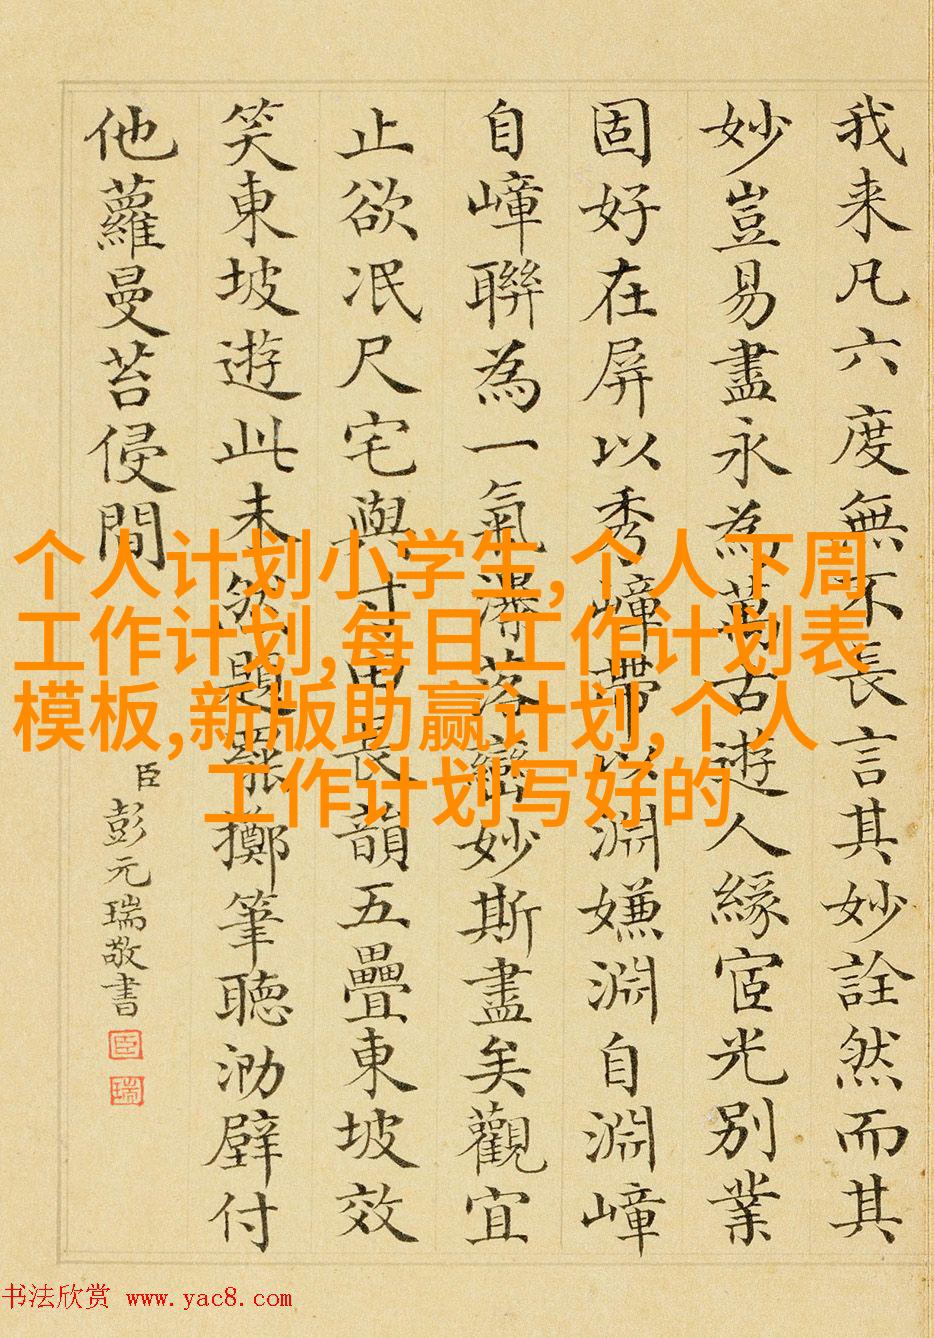 我来凡六度無不長言其妙詮然而其
妙豈易盡永為萬古遊人緣宦光別業
固好在屏以秀嶂帶以淵嫌淵自淵嶂
自嶂聯為一氣落巒妙斯盡矣觀宜
止欲冺尺宅與寸田長韻五疊東坡效
笑東坡遊此未然題罷擲筆聽泐壁付
他蘿曼苔侵間
臣彭元瑞敬書
臣
瑞
个人计划小学生,个人下周
工作计划,每日工作计划表
模板,新版助赢计划,个人
工作计划写好的
书法欣赏 www.yac8.com